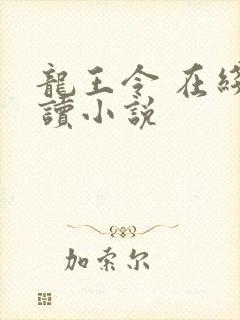 龍王令 在
讀小説
加索尔